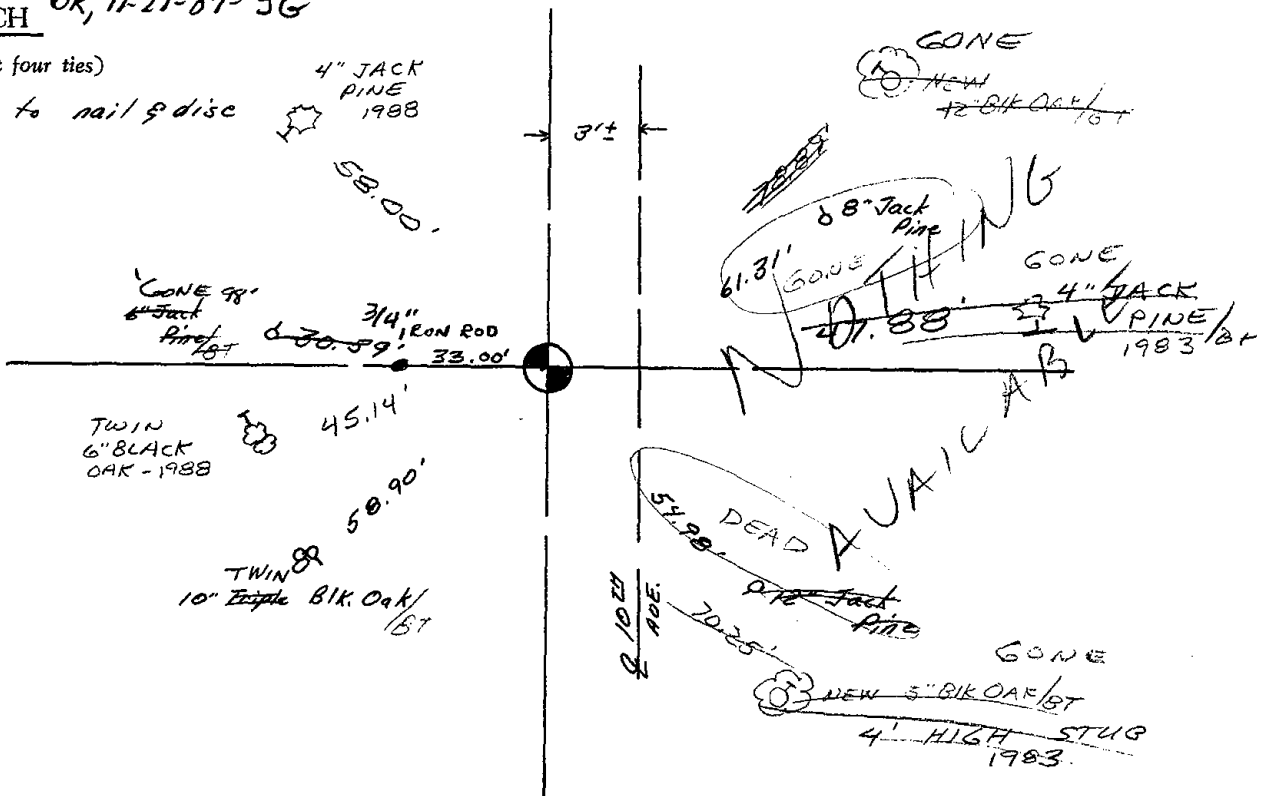 CH OK, 11-21-87 JG
four ties)
to nail & disc
4" JACK
PINE
1988
58.00'
3'±
GONE
NEW
12" Blk OAK/BT
78.89
8" Jack
Pine
61.31'
GONE
NOTHING
GONE
47.88'
4" JACK
PINE
1983/BT
GONE 98'
6" Jack
Pine/BT
30.59'
3/4"
IRON ROD
33.00'
TWIN
6" BLACK
OAK - 1988
45.14'
58.90'
TWIN
10" Triple Blk. Oak/BT
54.98'
DEAD
AVAILAB
12" Jack
Pine
℄ 10TH
AVE.
70.25'
GONE
NEW 5" Blk OAK/BT
4' HIGH STUB
1983